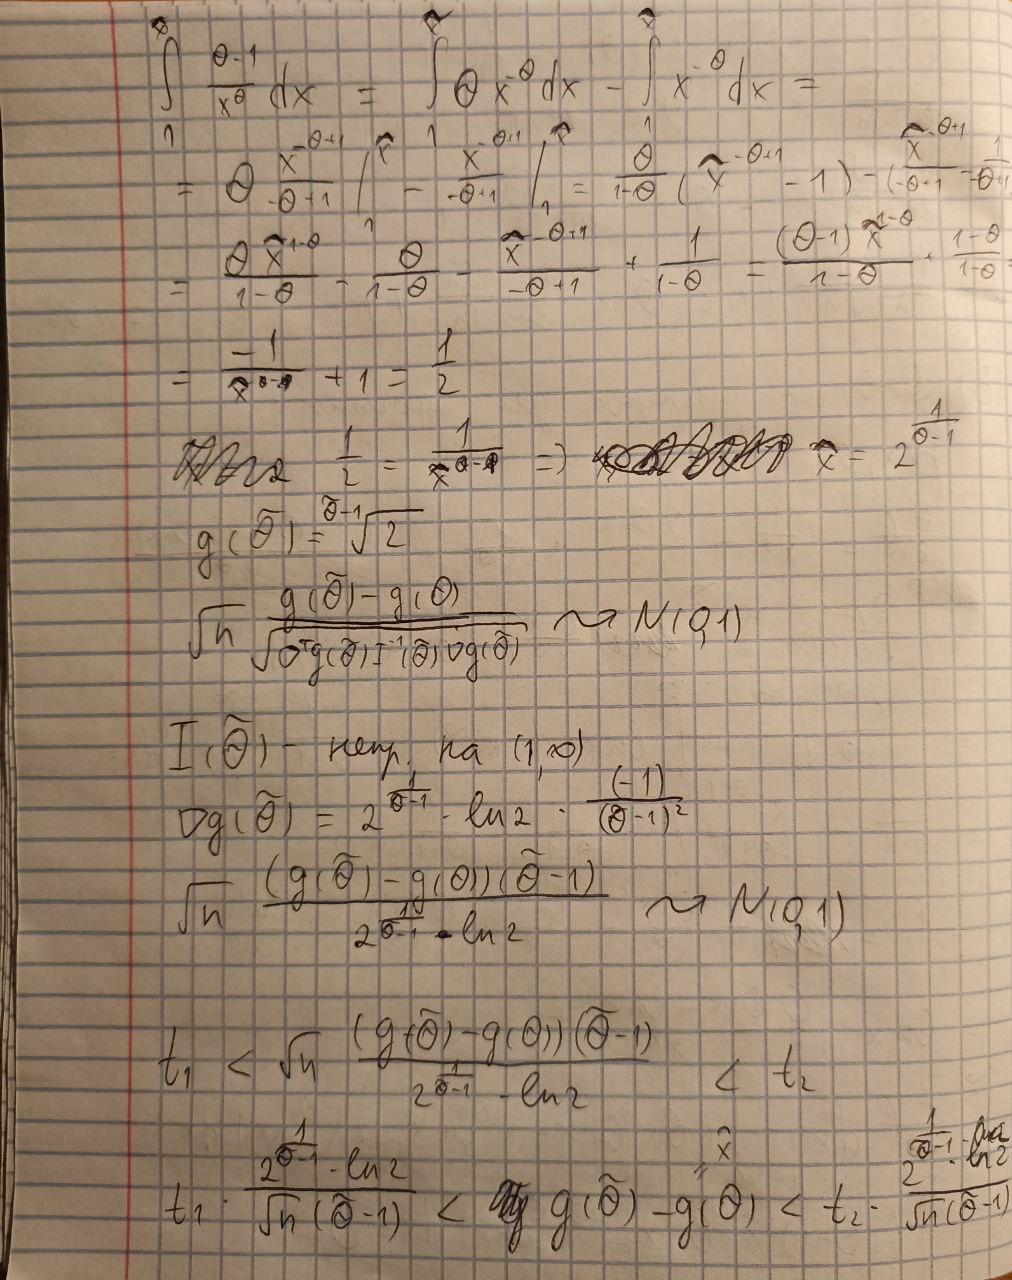 ∫₁^x̂ (θ-1)/x^θ dx = ∫₁^x̂ θ x^(-θ) dx - ∫₁^x̂ x^(-θ) dx =
= θ x^(-θ+1)/(-θ+1) |₁^x̂ - x^(-θ+1)/(-θ+1) |₁^x̂ = θ/(1-θ) (x̂^(-θ+1) - 1) - (x̂^(-θ+1)/(-θ+1) - 1/(-θ+1)
= θ x̂^(1-θ)/(1-θ) - θ/(1-θ) - x̂^(-θ+1)/(-θ+1) + 1/(1-θ) = (θ-1) x̂^(1-θ)/(1-θ) + (1-θ)/(1-θ) =
= -1/x̂^(θ-1) + 1 = 1/2
1/2 = 1/x̂^(θ-1) => x̂ = 2^(1/(θ-1))
g(θ̃) = ^(θ̃-1)√2
√n (g(θ̃) - g(θ))/√(∇ᵀg(θ̃) I⁻¹(θ̃) ∇g(θ̃)) ⇝ N(0,1)
I(θ̃) - непр. на (1,∞)
∇g(θ̃) = 2^(1/(θ̃-1)) · ln2 · (-1)/(θ̃-1)²
√n (g(θ̃) - g(θ))(θ̃-1)/(2^(1/(θ̃-1)) · ln2) ⇝ N(0,1)
t₁ < √n (g(θ̃) - g(θ))(θ̃-1)/(2^(1/(θ̃-1)) · ln2) < t₂
x̂
=
t₁ · 2^(1/(θ̃-1)) · ln2/(√n (θ̃-1)) < g(θ̃) - g(θ) < t₂ · 2^(1/(θ̃-1)) · ln2/(√n (θ̃-1))